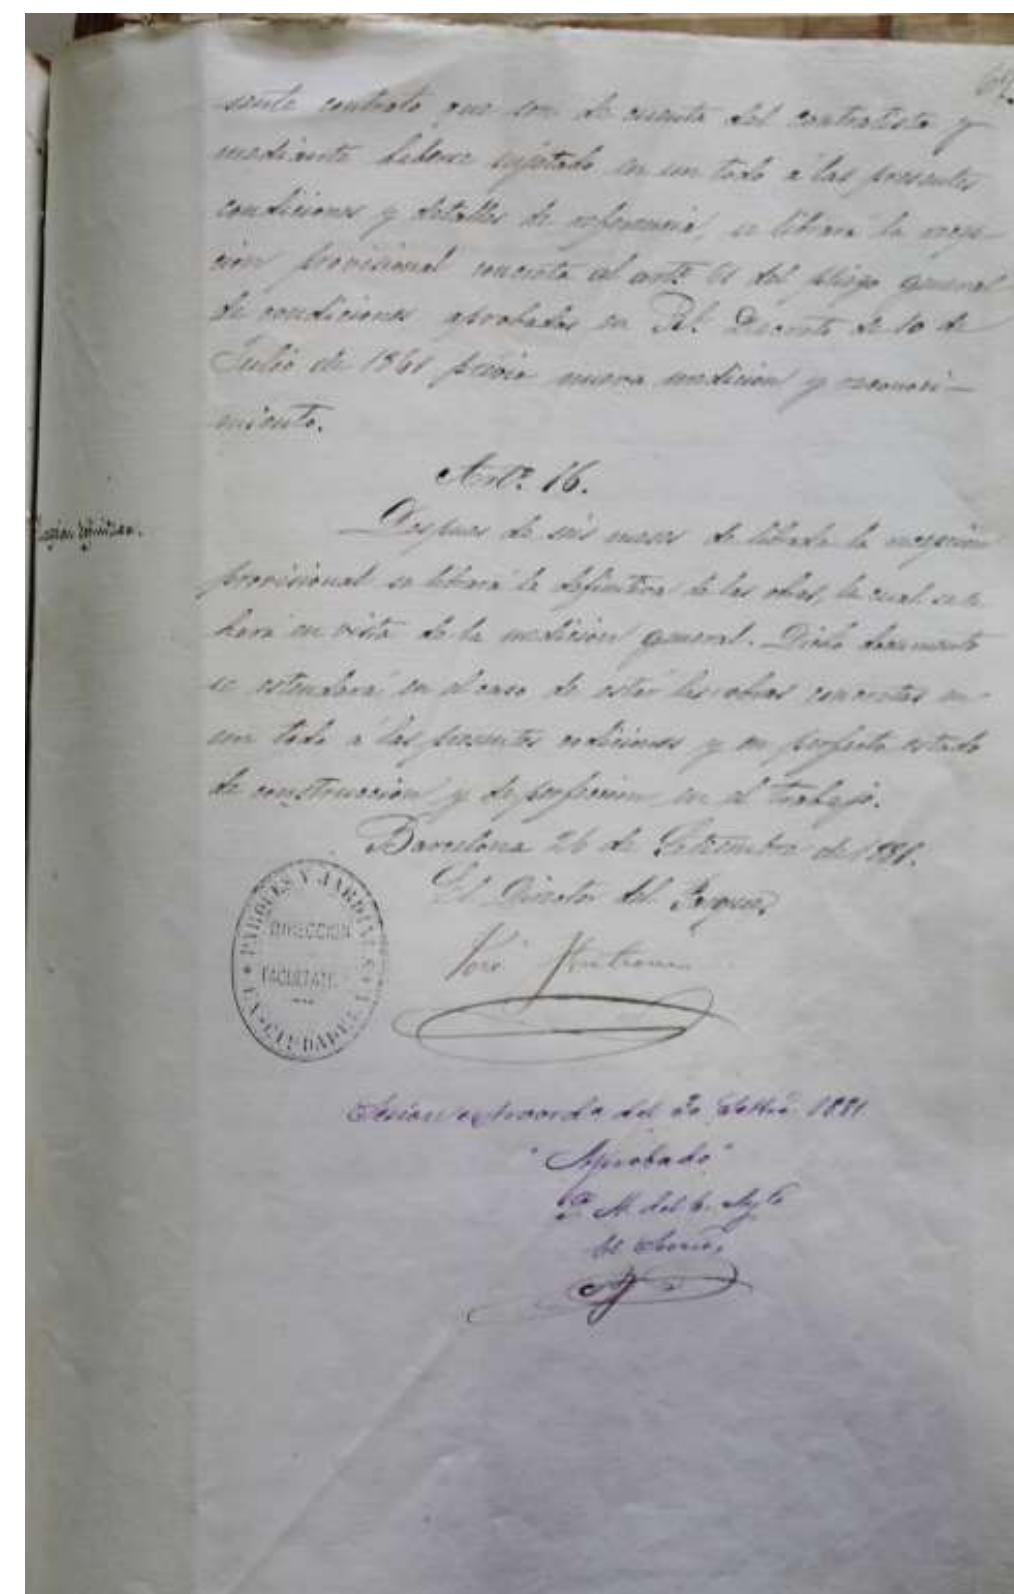 sente contrato que son de cuenta del contratista y
mediante haberse sujetado en un todo a las presentes
condiciones y detalles de referencia, se librará la recep-
cion provisional concreta al artº 61 del pliego general
de condiciones aprobadas en Rl. Decreto de 10 de
Julio de 1861 previa nueva medicion y reconoci-
miento.
Artº. 16.
Despues de seis meses de librada la recepcion
provisional se librará la definitiva de las obras, la cual se
hará en vista de la medicion general. Dicho documento
se estenderá en el caso de estar las obras concretas en
un todo a las presentes condiciones y en perfecto estado
de construccion y de perfeccion en el trabajo.
Barcelona 26 de Setiembre de 1881.
El Director del Parque,
PARQUES Y JARDINES
DIRECCION
FACULTATIVA
LA CIUDADELA
José
del 30 Setbre 1881
"Aprobado"